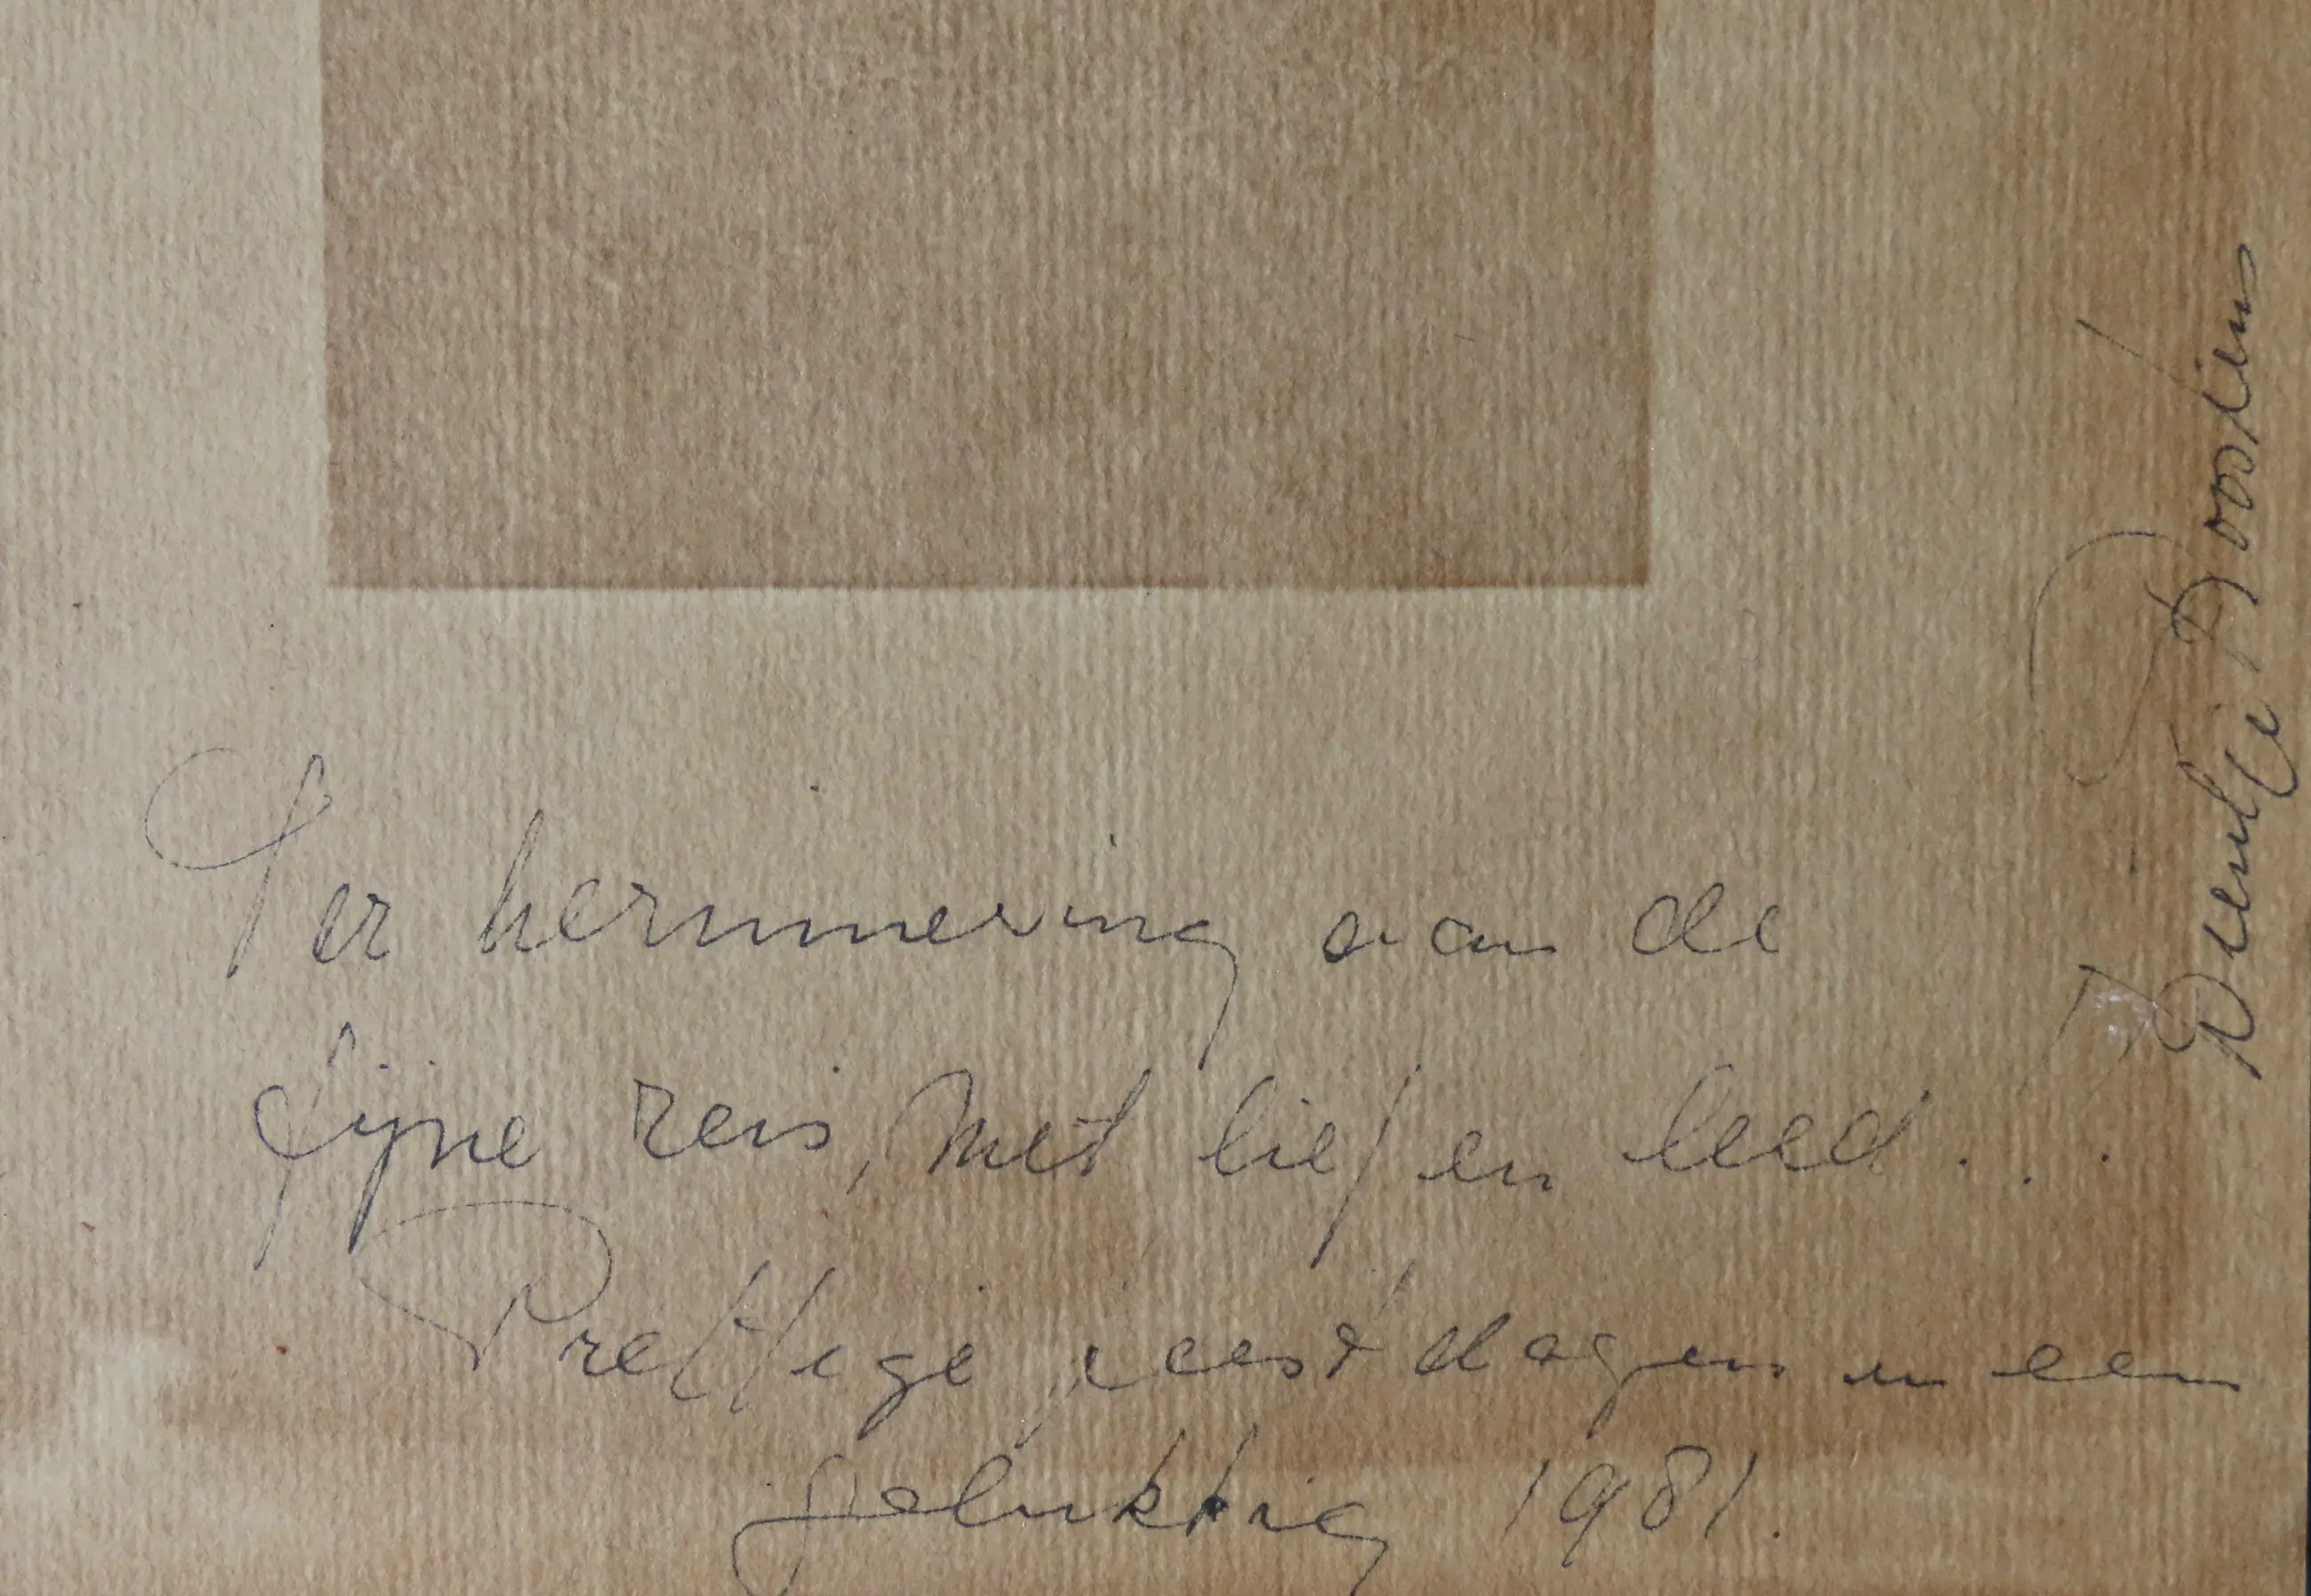 Ter herinnering aan de
fijne reis, met lief en leed...
Prettige feestdagen en een
gelukkig 1981.